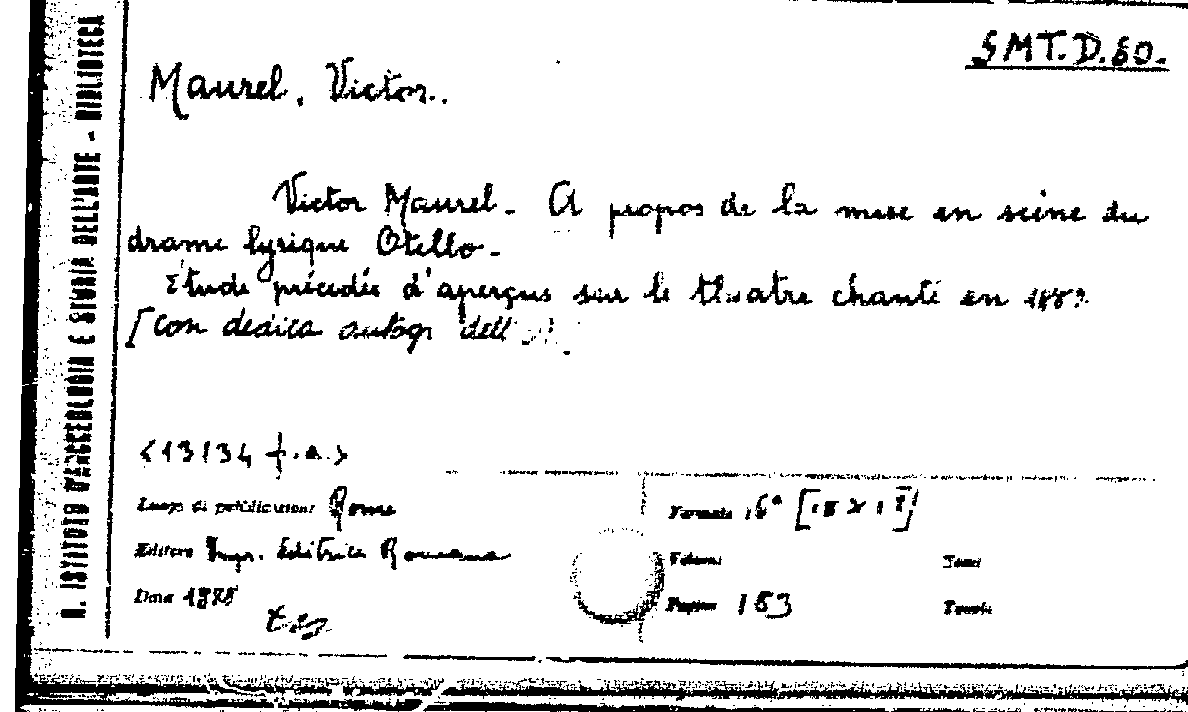 SMT.D.60.
Maurel, Victor.
Victor Maurel - A propos de la mise en scène du
drame lyrique Otello -
Etude précédée d'aperçus sur le théatre chanté en 1887
[Con dedica autogr dell'
<13134 f.a.>
Luogo di pubblicazione Rome
Formato 16° [18 x 12]
Editore Impr. Editrice Romana
Volumi
Tomi
Data 1888
Pagine 183
Tavole
R. ISTITUTO D'ARCHEOLOGIA E STORIA DELL'ARTE - BIBLIOTECA